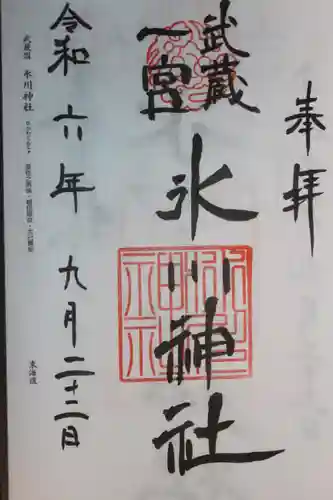 奉拝
武蔵
一宮
氷川神社
令和六年 九月二十二日
武蔵国 氷川神社
東海道